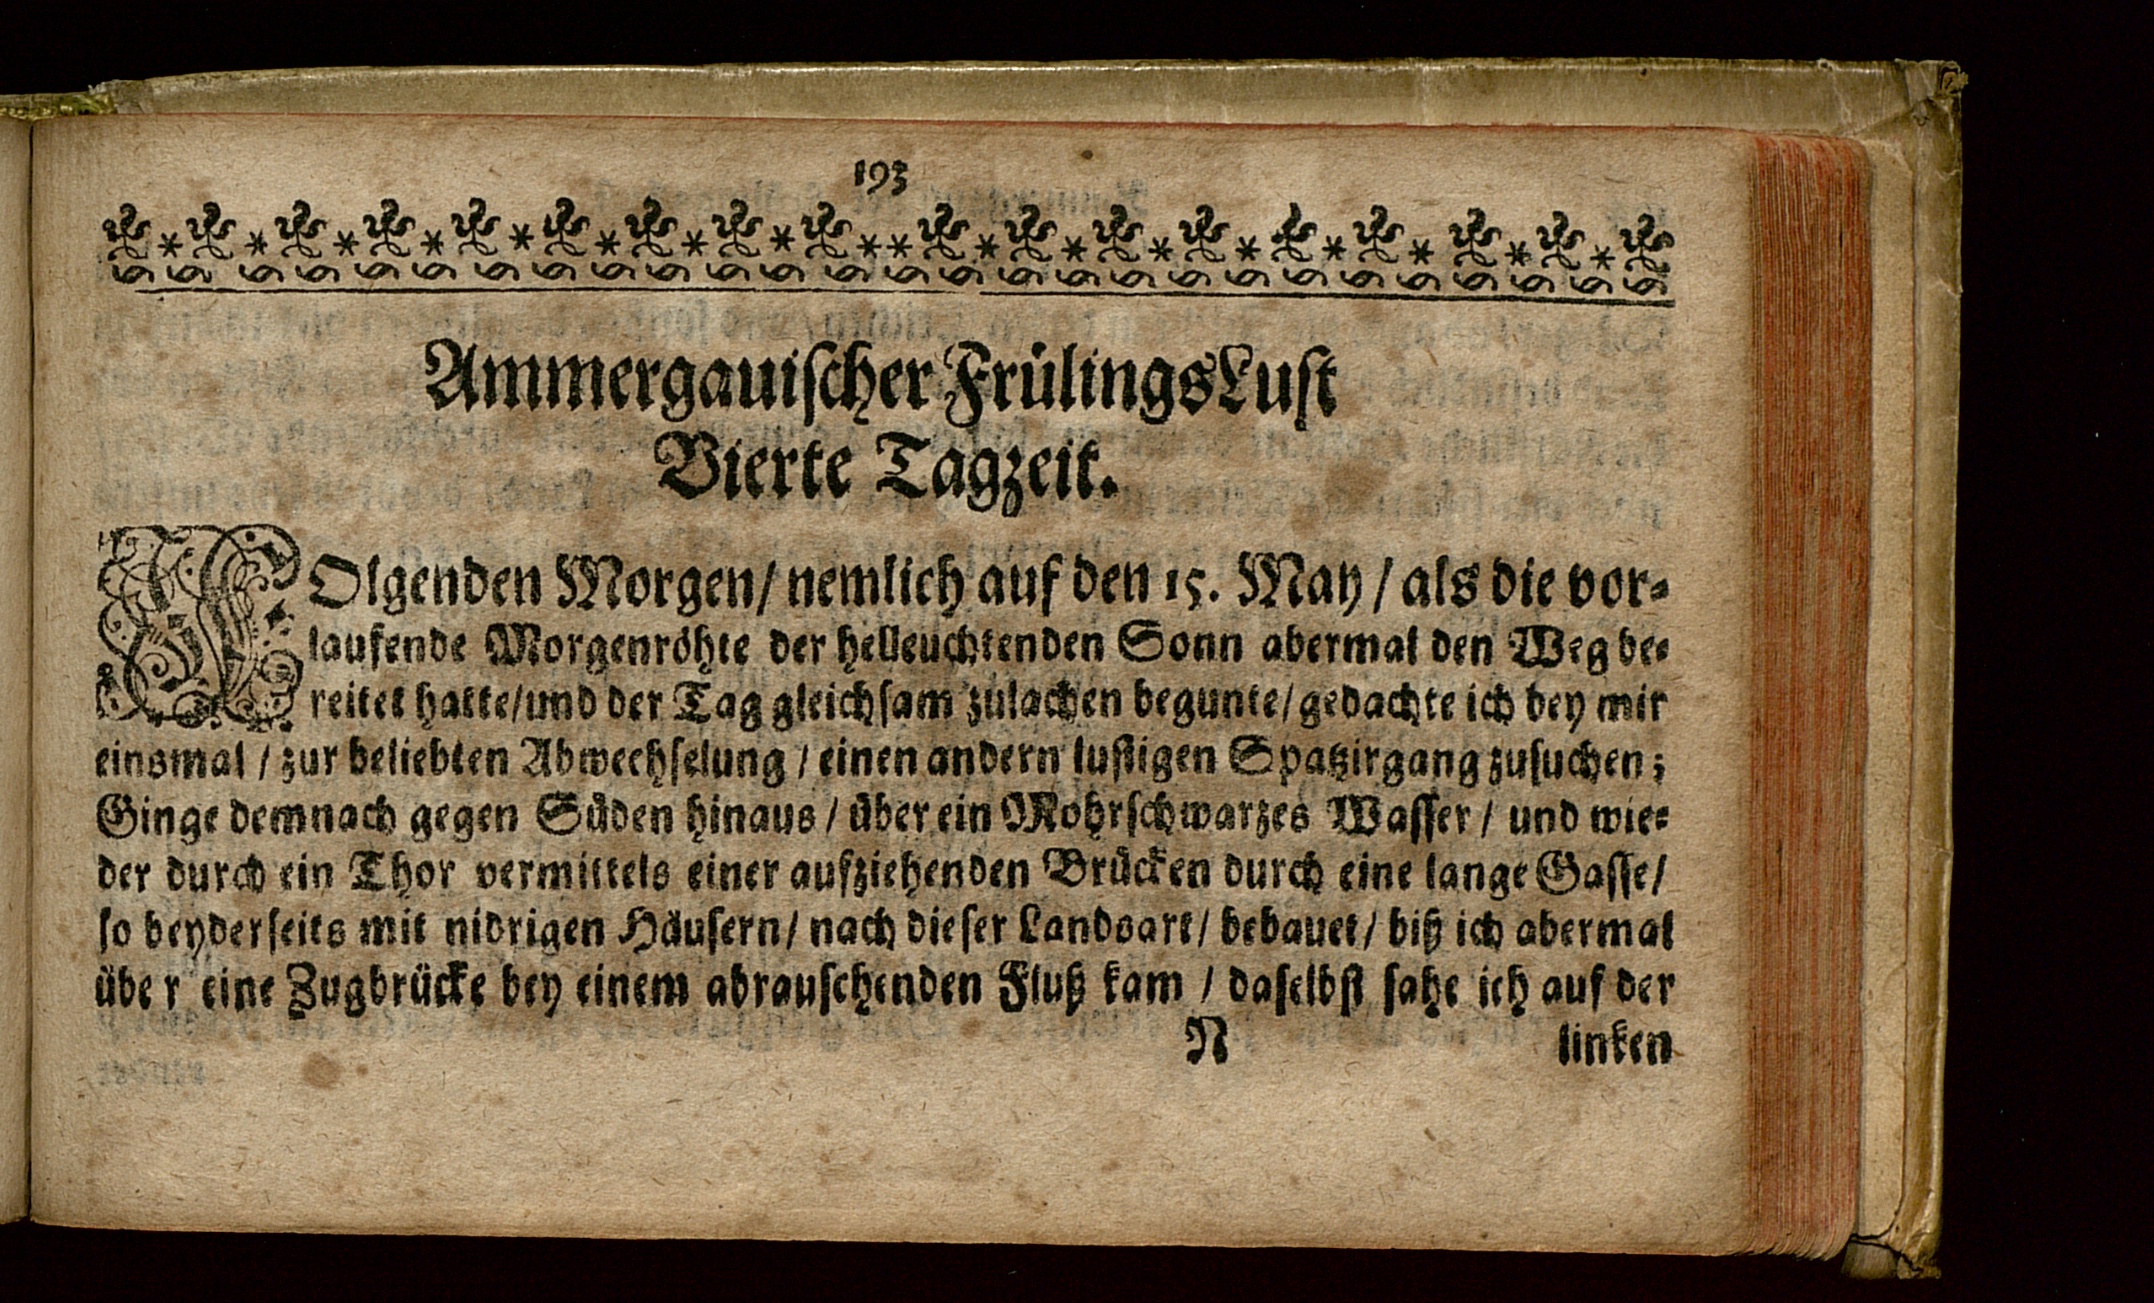 193
Ammergauischer FrülingsLust
Vierte Tagzeit.
FOlgenden Morgen/ nemlich auf den 15. May / als die vor-
laufende Morgenröhte der helleuchtenden Sonn abermal den Weg be-
reitet hatte/und der Tag gleichsam zulachen begunte/gedachte ich bey mir
einsmal / zur beliebten Abwechselung / einen andern lustigen Spatzirgang zusuchen;
Ginge demnach gegen Süden hinaus / über ein Mohrschwarzes Wasser / und wie-
der durch ein Thor vermittels einer aufziehenden Brücken durch eine lange Gasse/
so beyderseits mit nidrigen Häusern/ nach dieser Landsart/ bebauet/ biß ich abermal
über eine Zugbrücke bey einem abrauschenden Fluß kam / daselbst sahe ich auf der
N linken